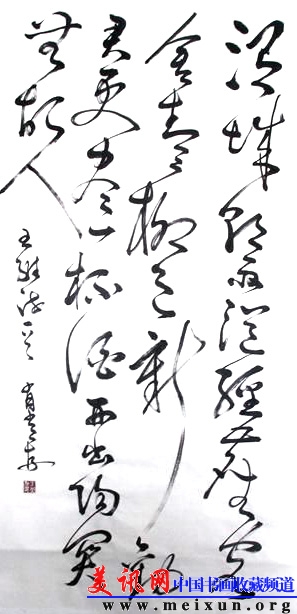 渭城朝雨浥輕塵客
舍青々柳色新勸
君更盡一杯酒西出陽關
無故人
王維詩一首
美讯网 中国书画收藏频道
www.meixun.org